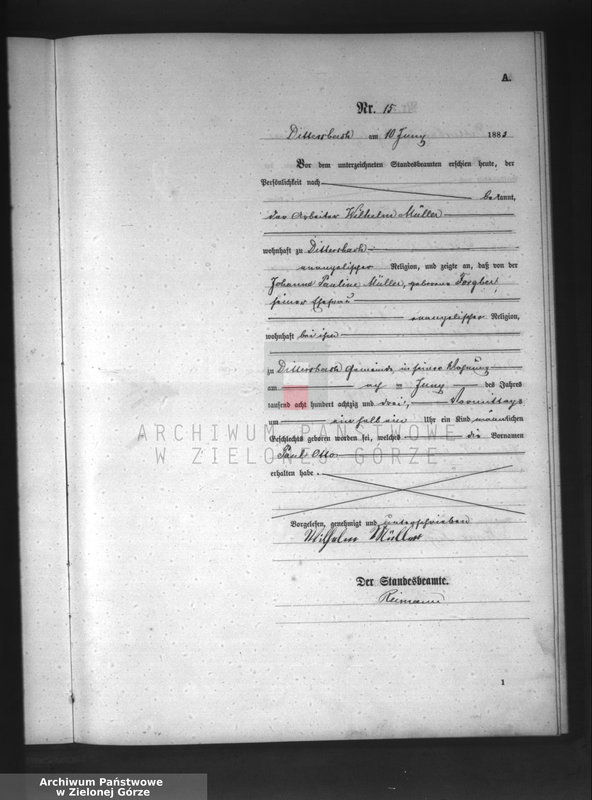 A.
Nr. 15
Dittersbach am 10 Juny 1883
Vor dem unterzeichneten Standesbeamten erschien heute, der
Persönlichkeit nach
bekannt,
der Arbeiter Wilhelm Müller
wohnhaft zu Dittersbach
evangelischer Religion, und zeigte an, daß von der
Johanne Pauline Müller, geborene
seiner Ehefrau
evangelischer Religion,
wohnhaft bei ihm
zu Dittersbach Gemeinde, in seiner Wohnung
am Juny des Jahres
tausend acht hundert achtzig und drei, Vormittags
um ein halb ein Uhr ein Kind männlichen
Geschlechts geboren worden sei, welches die Vornamen
Paul Otto
erhalten habe.
Vorgelesen, genehmigt und unterschrieben
Wilhelm Müller
Der Standesbeamte.
Reimann
1
ARCHIWUM PAŃSTWOWE
W ZIELONEJ GÓRZE
Archiwum Państwowe
w Zielonej Górze